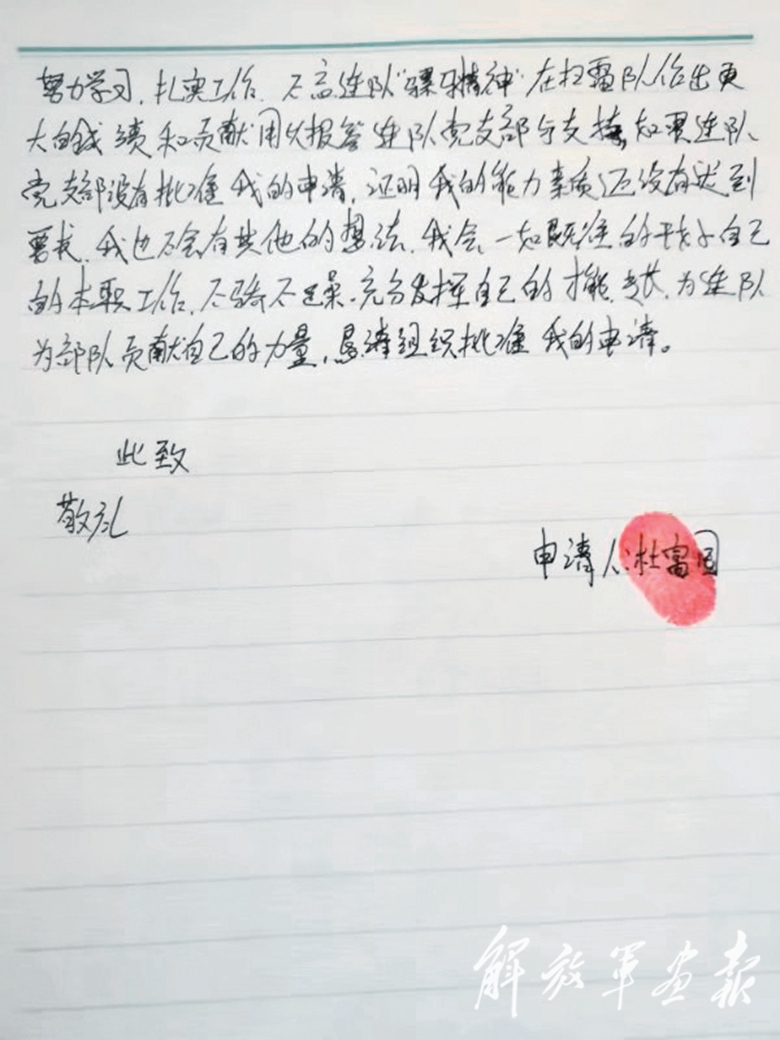 努力学习，扎实工作，不忘连队“骡子精神”在扫雷队作出更
大的成绩和贡献用以报答连队党支部与支持，如果连队
党支部没有批准我的申请，证明我的能力素质还没有达到
要求，我也不会有其他的想法，我会一如既往的干好自己
的本职工作，不骄不躁，充分发挥自己的才能，专长，为连队
为部队贡献自己的力量，恳请组织批准我的申请。
此致
敬礼
申请人：杜富国
解放军画报